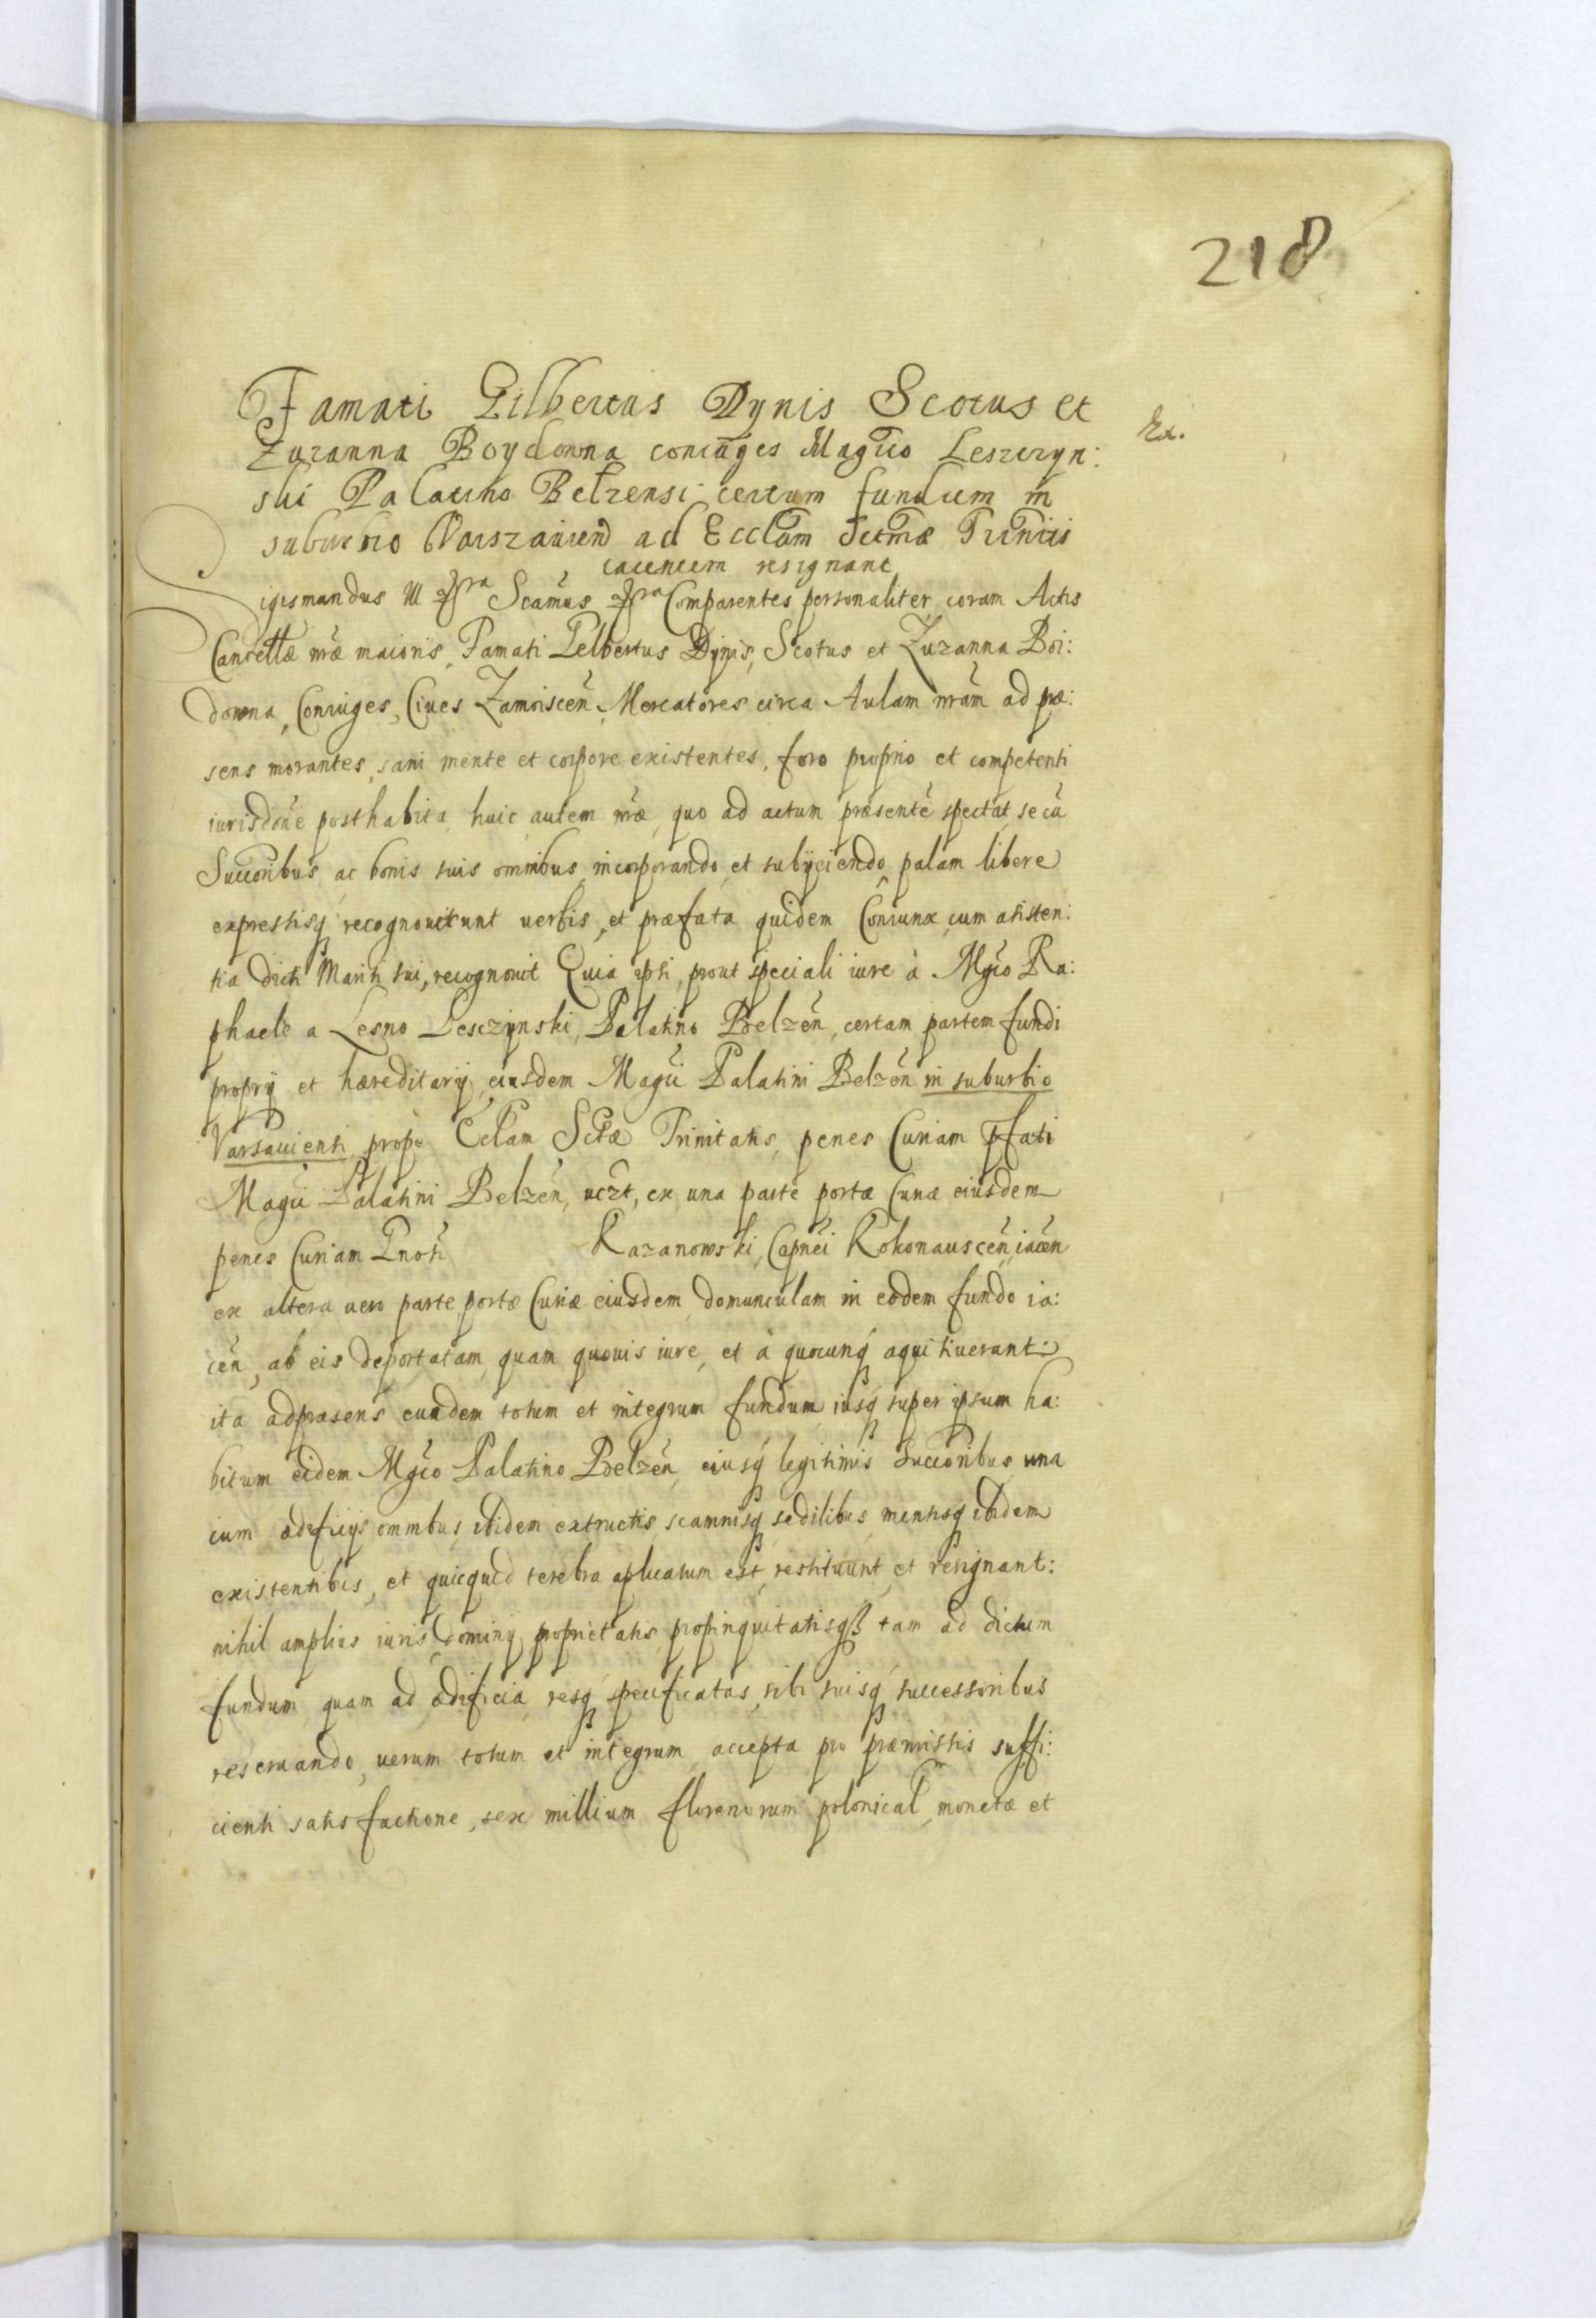 218
Famati Gilbertus Dynis Scotus et
Ex.
Zuzanna Boydowna coniuges Magco Leszczyn:
ski Palatino Belzensi certum fundum in
suburbio Warszavien ad Ecclam Sctmæ Trinitis
iacentem resignant
Sigismundus III &ra Scamus &ra Comparentes personaliter coram Actis
Cancellæ nræ maioris, Famati Gelbertus Dynis, Scotus et Zuzanna Boi:
downa, Coniuges, Ciues Zamoiscen, Mercatores circa Aulam nram ad præ:
sens morantes, sani mente et corpore existentes, foro proprio et competenti
iurisdone posthabita, huic autem nræ, quo ad actum præsente spectat, se cu
Succoribus ac bonis suis omnibus incorporando et subijciendo, palam libere
expressisq recognouerunt uerbis, et præfata quidem Coniunx, cum assisten:
tia dicti Mariti sui, recognouit Quia ipsi, prout speciali iure à Mgco Ra:
phaele a Lesno Lesczynski, Palatino Belzen, certam partem fundi
proprij et hæreditarij eiusdem Magci Palatini Belzen in suburbio
Varsauiensi, prope Eccllam Sctæ Trinitatis, penes Curiam pfati
Magci Palatini Belzen, uczt, ex una parte portæ Curiæ eiusdem
penes Curiam Gnosi Kazanowski, Capnei Kokonauscen, iacen
ex altera uero parte portæ Curiæ eiusdem domunculam in eodem fundo ia:
cen, ab eis deportatam, quam quouis iure, et à quocunq aquisiuerant:
ita adpræsens eundem totum et integrum fundum iusq super ipsum ha:
bitum eidem Mgco Palatino Belzen, eiusq legitimis Succoribus una
cum ædificijs omnibus ibidem extructis, scamnisq sedilibus, mensisq ibidem
existentibus, et quicquid terebra aplicatum est, restituunt et resignant:
nihil amplius iuris, dominij, proprietatis, propinquitatisq tam ad dictum
fundum, quam ad ædificia, resq specificatas, sibi suisq successoribus
reseruando, uerum totum et integrum, accepta pro præmissis suffi:
cienti satisfactione, sex millium florenorum polonical, monetæ et